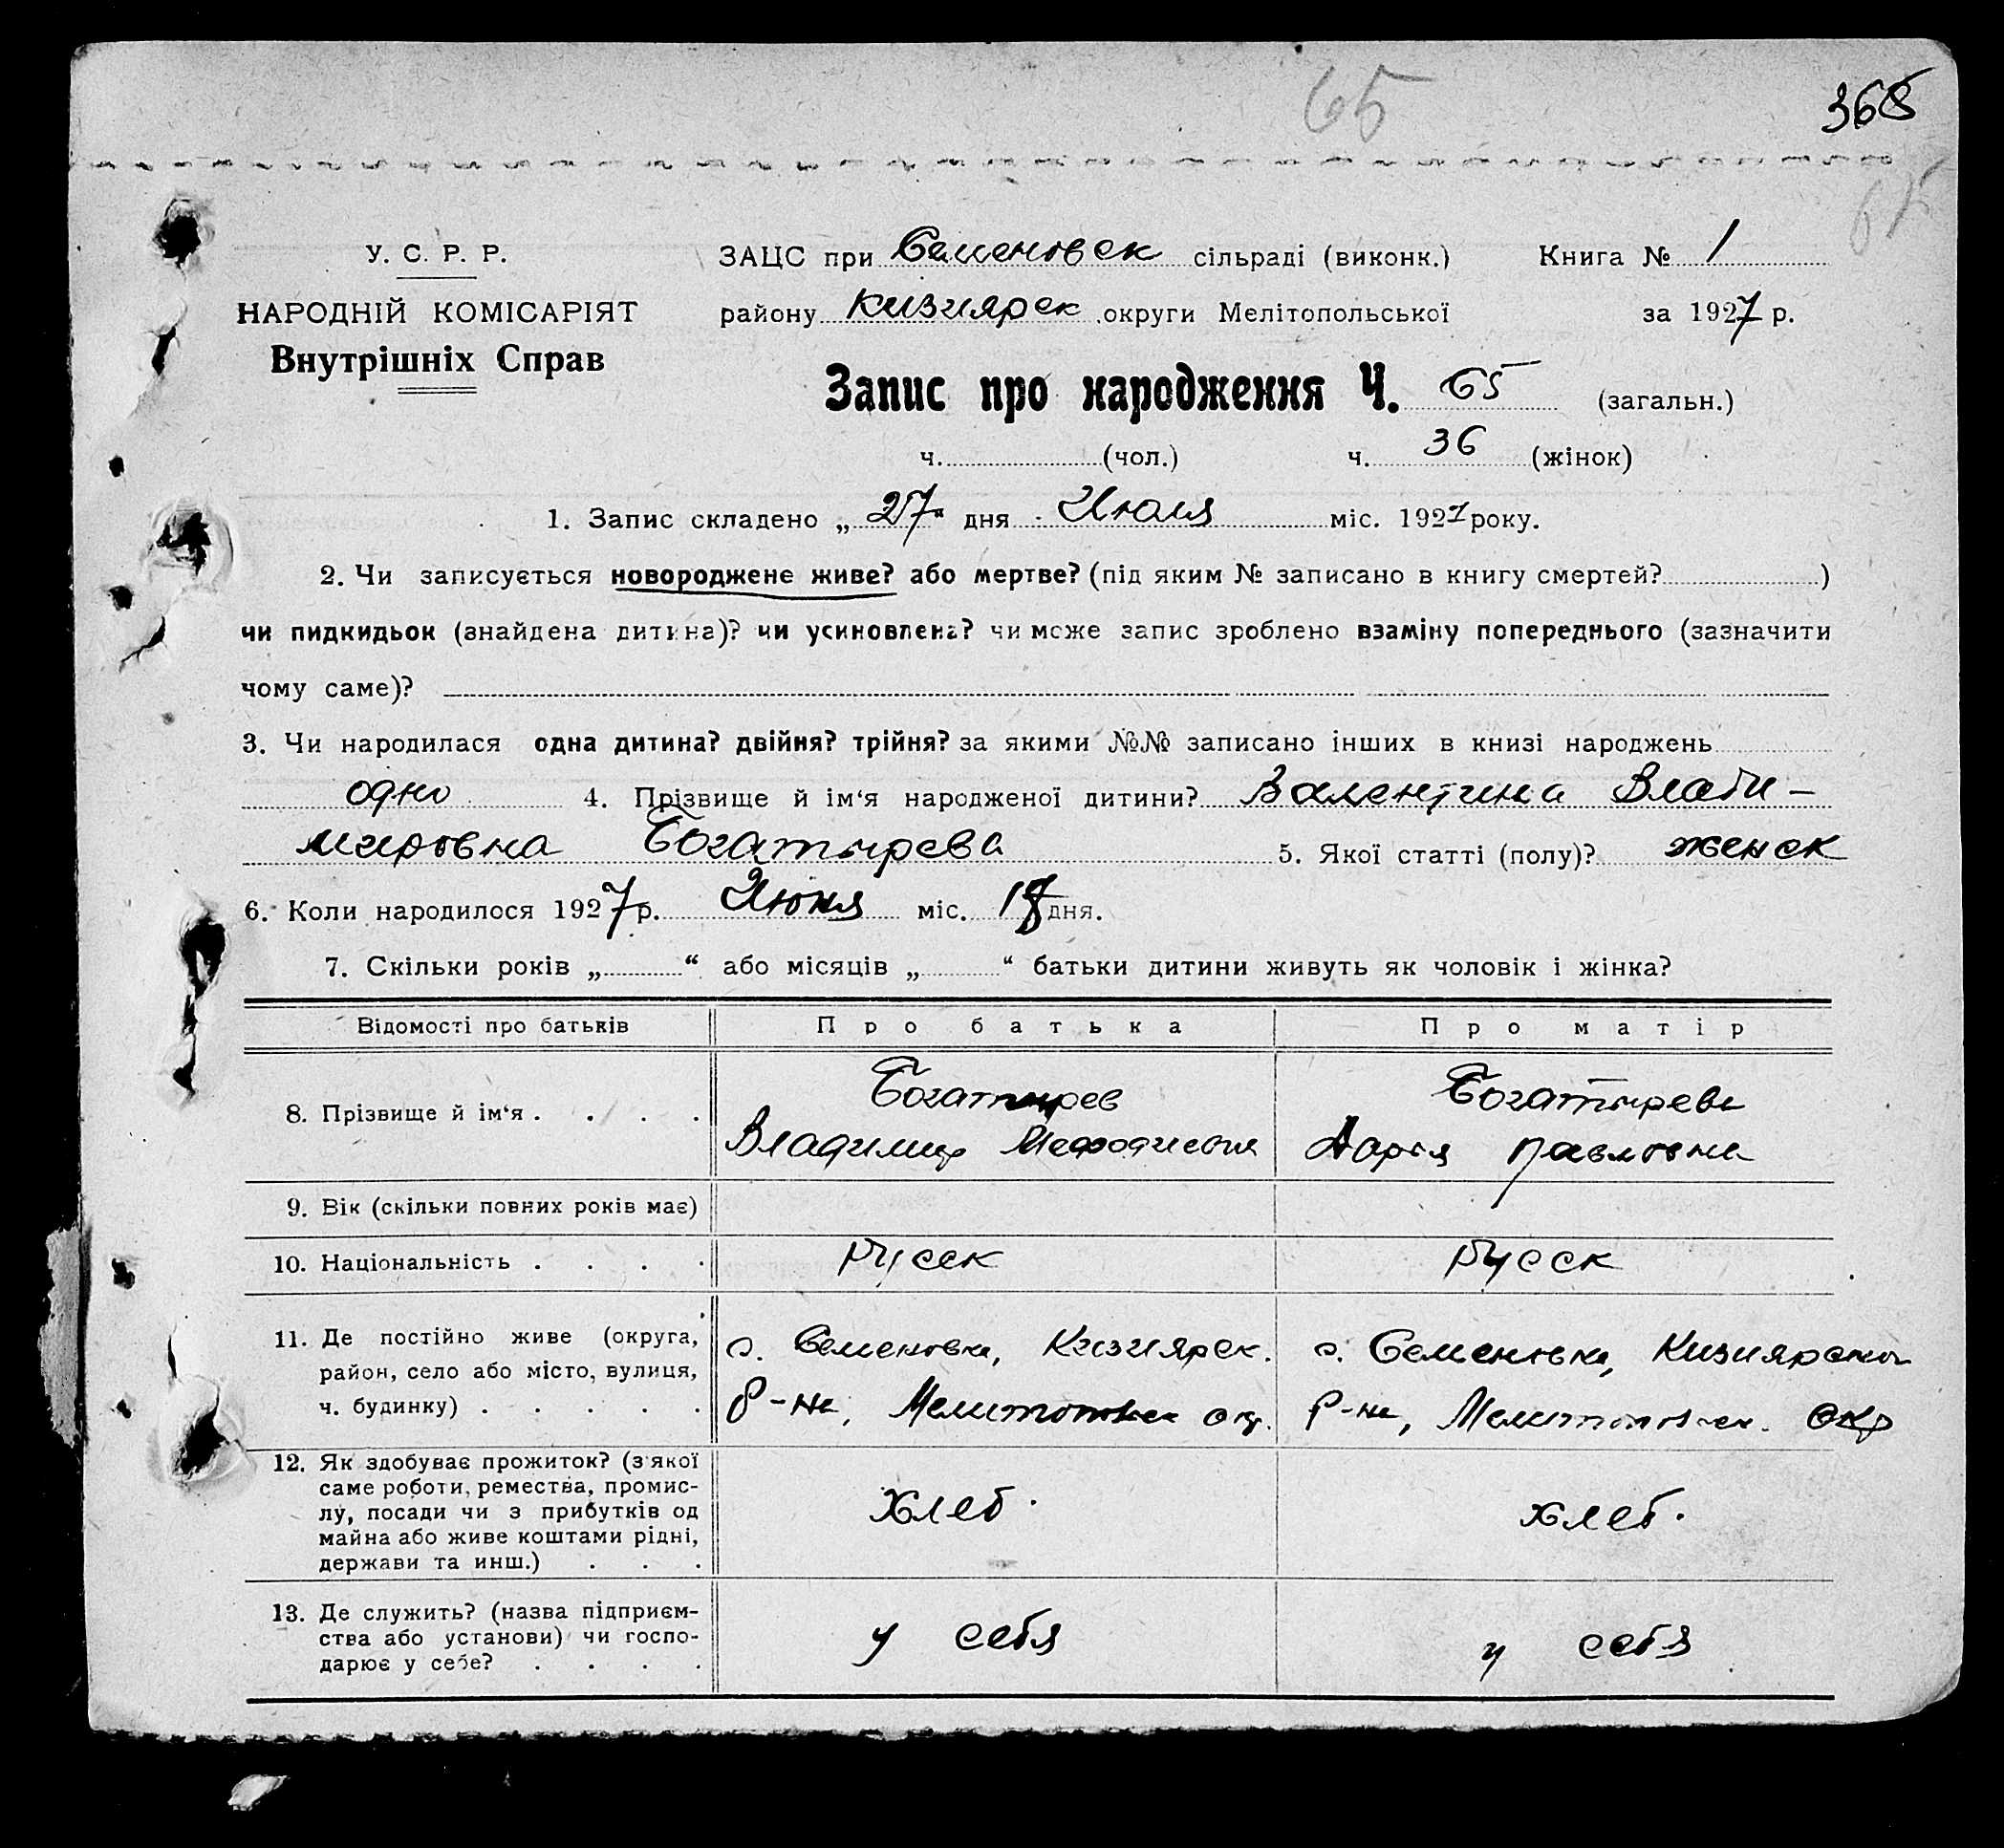 65
368
65
У. С. Р. Р.
НАРОДНІЙ КОМІСАРІЯТ
Внутрішніх Справ
ЗАЦС при Семеновск сільраді (виконк.) Книга № 1
району Кизиярск округи Мелітопольської за 1927 р.
Запис про народження Ч. 65 (загальн.)
ч. (чол.) ч. 36 (жінок)
1. Запис складено „ 27 " дня Июля міс. 1927 року.
2. Чи записується новороджене живе? або мертве? (під яким № записано в книгу смертей? )
чи пидкидьок (знайдена дитина)? чи усиновлена? чи може запис зроблено взаміну попереднього (зазначити
чому саме)?
3. Чи народилася одна дитина? двійня? трійня? за якими №№ записано інших в книзі народжень
одно 4. Прізвище й ім‘я народженої дитини? Валентина Влади-
мировна Богатырева 5. Якої статті (полу)? женск
6. Коли народилося 1927 р. Июня міс. дня.
7. Скільки років „ “ або місяців „ “ батьки дитини живуть як чоловік і жінка?
Відомості про батьків Про батька Про матір
8. Прізвище й ім‘я . . . . Богатырев Владимир Мефодиевич Богатырева Дарья Павловна
9. Вік (скільки повних років має)
10. Національність . . . . Русск Русск
11. Де постійно живе (округа,
район, село або місто, вулиця,
ч. будинку) . . . . .
с. Семеновка, Кизиярск.
р-на, Мелитопольск окр.
с. Семеновка, Кизиярского
р-на, Мелитопольск. окр
12. Як здобуває прожиток? (з'якої
саме роботи, ремества, промис-
лу, посади чи з прибутків од
майна або живе коштами рідні,
держави та инш.) . . .
хлеб. хлеб.
13. Де служить? (назва підприєм-
ства або установи) чи госпо-
дарює у себе? . . . .
у себя у себя